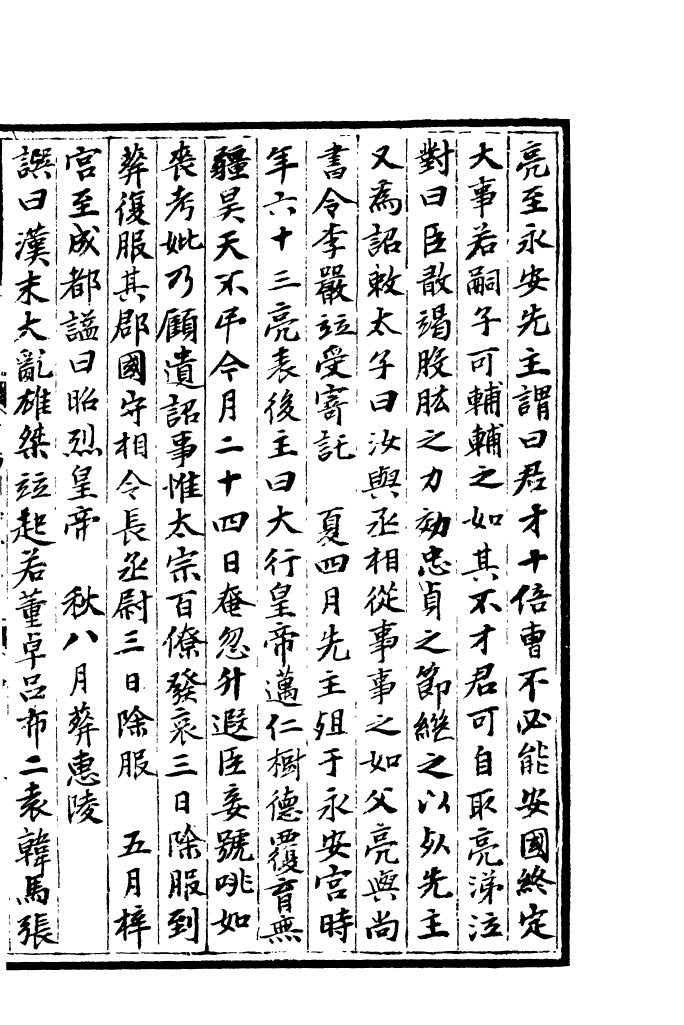 亮至永安先主謂曰君才十倍曹不必能安國終定
大事若嗣子可輔輔之如其不才君可自取亮涕泣
對曰臣敢竭股肱之力効忠貞之節継之以死先主
又為詔敕太子曰汝與丞相從事事之如父亮與尚
書令李嚴竝受寄託　夏四月先主殂于永安宮時
年六十三亮表後主曰大行皇帝邁仁樹德覆育無
疆昊天不弔今月二十四日奄忽升遐臣妾號咷如
喪考妣乃顧遺詔事惟太宗百僚發哀三日除服到
葬復服其郡國守相令長丞尉三日除服　五月梓
宮至成都諡曰昭烈皇帝　秋八月葬惠陵
譔曰漢末大亂雄桀竝起若董卓呂布二袁韓馬張